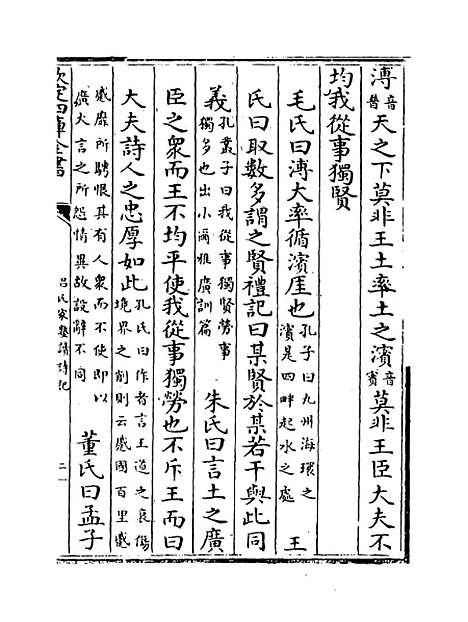 溥音普天之下莫非王土率土之濵音賔莫非王臣大夫不
均我從事獨賢
毛氏曰溥大率循濵厓也孔子曰九州海環之濵是四畔起水之處王
氏曰取數多謂之賢禮記曰某賢於某若干與此同
義孔叢子曰我從事獨賢勞事獨多也出小爾雅廣訓篇朱氏曰言土之廣
臣之衆而王不均平使我從事獨勞也不斥王而曰
大夫詩人之忠厚如此孔氏曰作者言王道之衰傷境界之削則云蹙國百里蹙
蹙靡所騁恨其有人衆而不使即以廣大言之所怨情異故設辭不同董氏曰孟子
欽定四庫全書
吕氏家塾讀詩記
二一